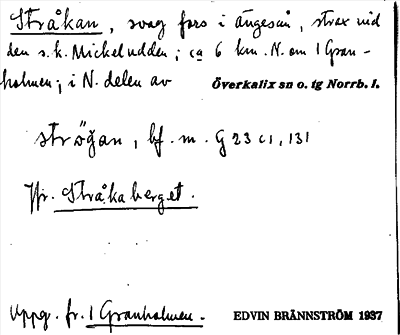 Stråkan, svag fors i Ängesån, strax vid
den s.k. Mickeludden; ca 6 km. N. om 1 Gran-
holmen; i N. delen av Överkalix sn o. tg Norrb. l.
strö̆gan, bf. m. G 23 c 1, 131
Jfr. Stråkaberget.
Uppg. fr. 1 Granholmen. EDVIN BRÄNNSTRÖM 1937